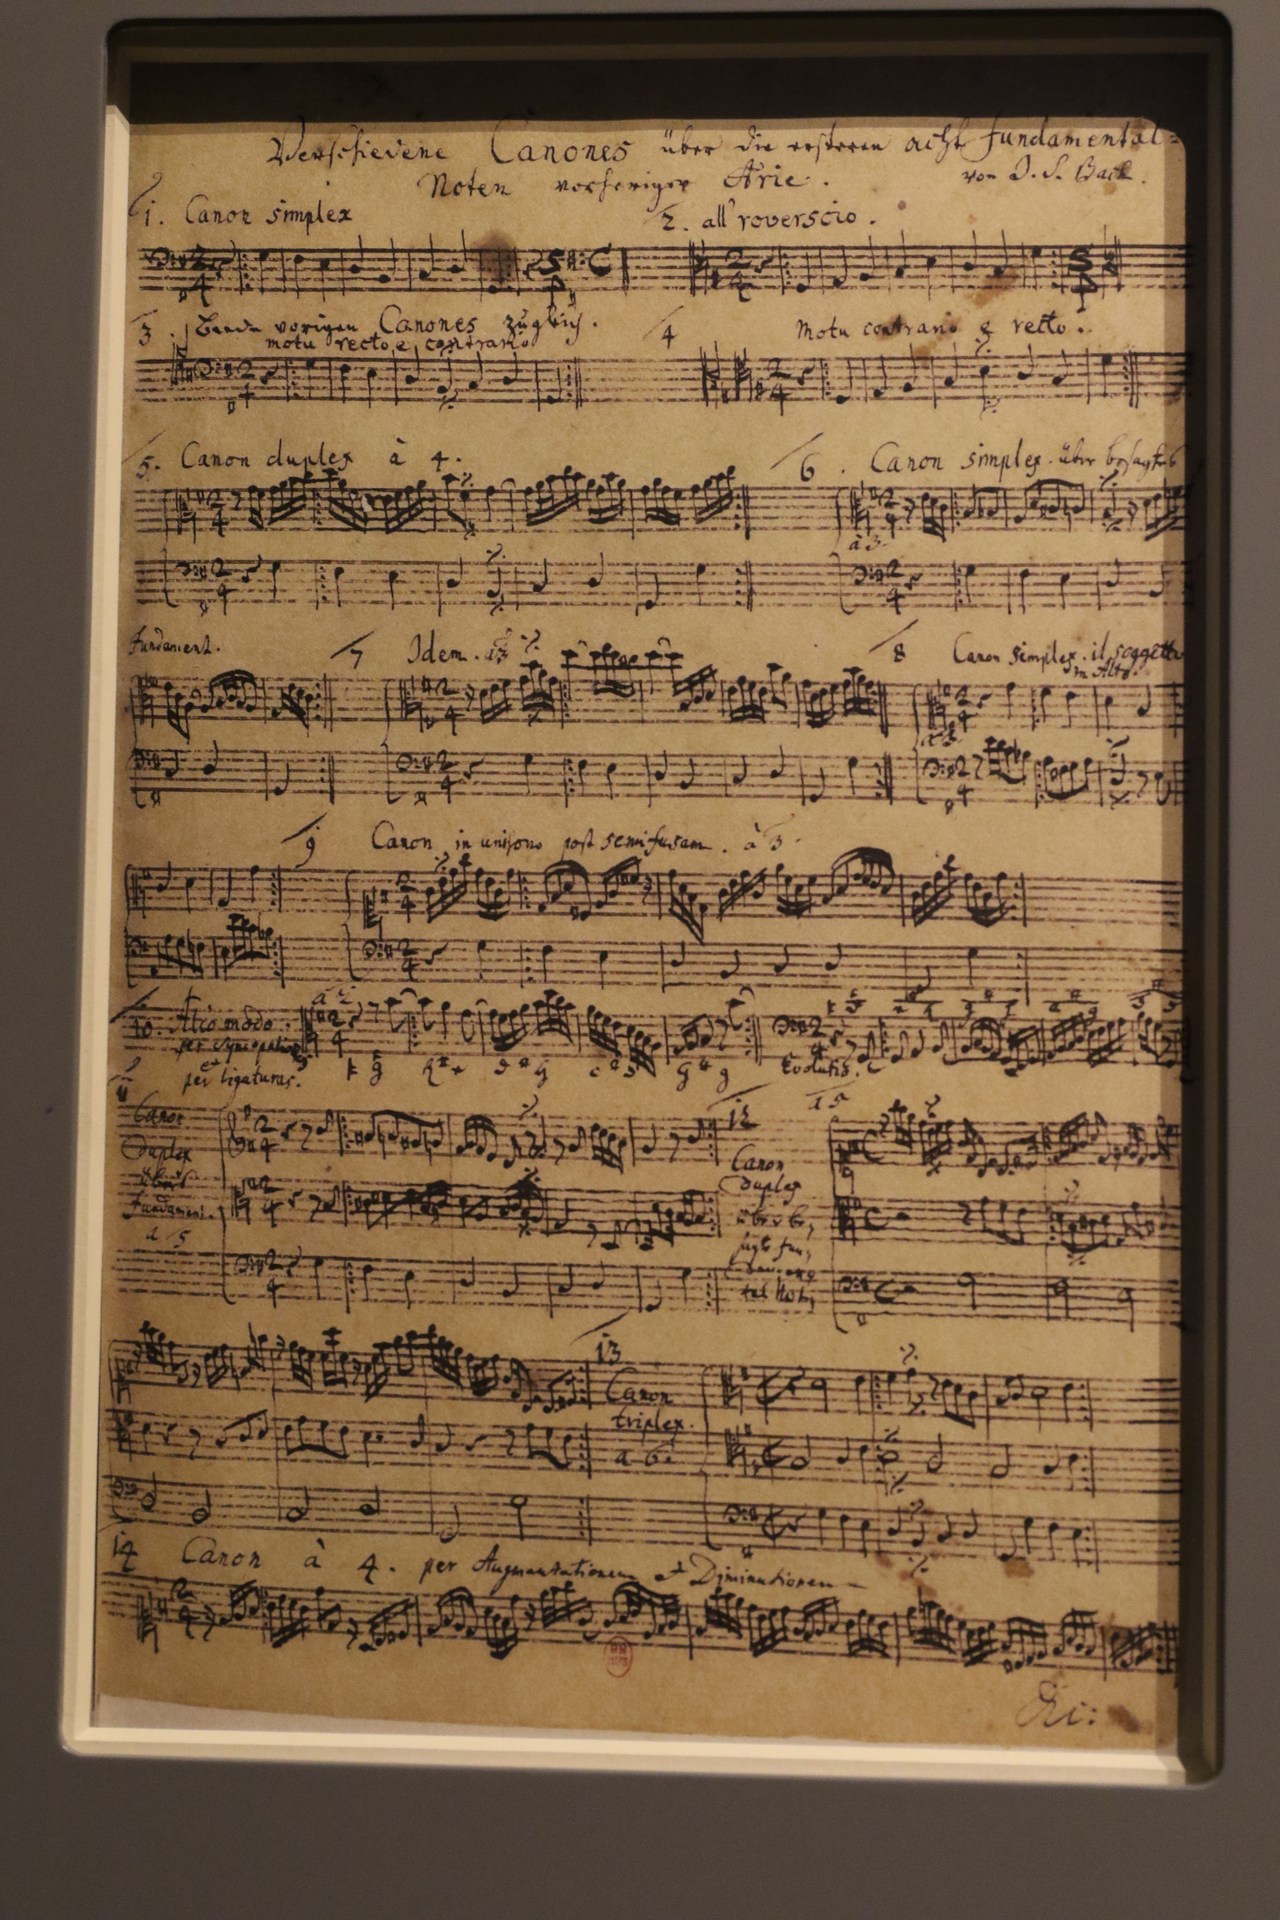 Verschiedene Canones über die ersteren acht Fundamental=
Noten vorheriger Arie. von J. S. Bach.
1. Canon simplex
2. all' roverscio.
3. Beede vorigen Canones zugleich.
motu recto e contrario
4 motu contrario e recto.
5. Canon duplex à 4.
6. Canon simplex. über besagtes
à 3.
Fundament.
7 Idem. à 3
8 Canon simplex. il soggetto
in Alto.
à 3
9 Canon in unisono post semifusam. à 3.
10. Alio modo.
per syncopationes
et
per ligaturas.
à 2
Evolutio.
11
Canon
duplex
übers
Fundament.
a 5
12
a 5
Canon
duplex
über be,
sagte fun,
damental Noten
13
Canon
triplex.
a 6.
14 Canon à 4. per Augmentationem et Diminutionem
&c: